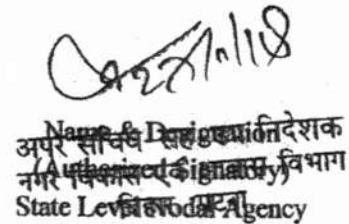 27/11/18
Name & Designation
अपर सचिव सह निदेशक
(Authorized Signatory)
नगर विकास एवं आवास विभाग
State Level Nodal Agency
बिहार, पटना